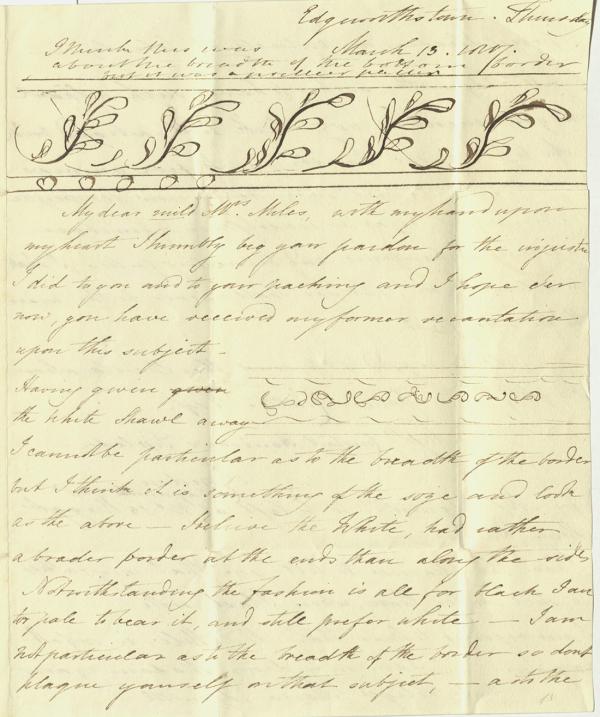 Edgworthstown. Thursday
I think this was March 13.
about the breadth of the bottom border
but it was a prettier pattern
My dear mild Mrs. Miles, with my hand upon
my heart I humbly beg your pardon for the injustice
I did to you and to your packing and I hope ere
now, you have received my former recantation
upon this subject -
Having given given
the white Shawl away
I cannot be particular as to the breadth of the border
but I think it is something of the size and look
as the above - I believe the White, had rather
a broader border at the ends than along the sides
Notwithstanding the fashion is all for black I am
too pale to bear it, and still prefer white - I am
not particular as to the breadth of the border so dont
plague yourself on that subject, - as to the